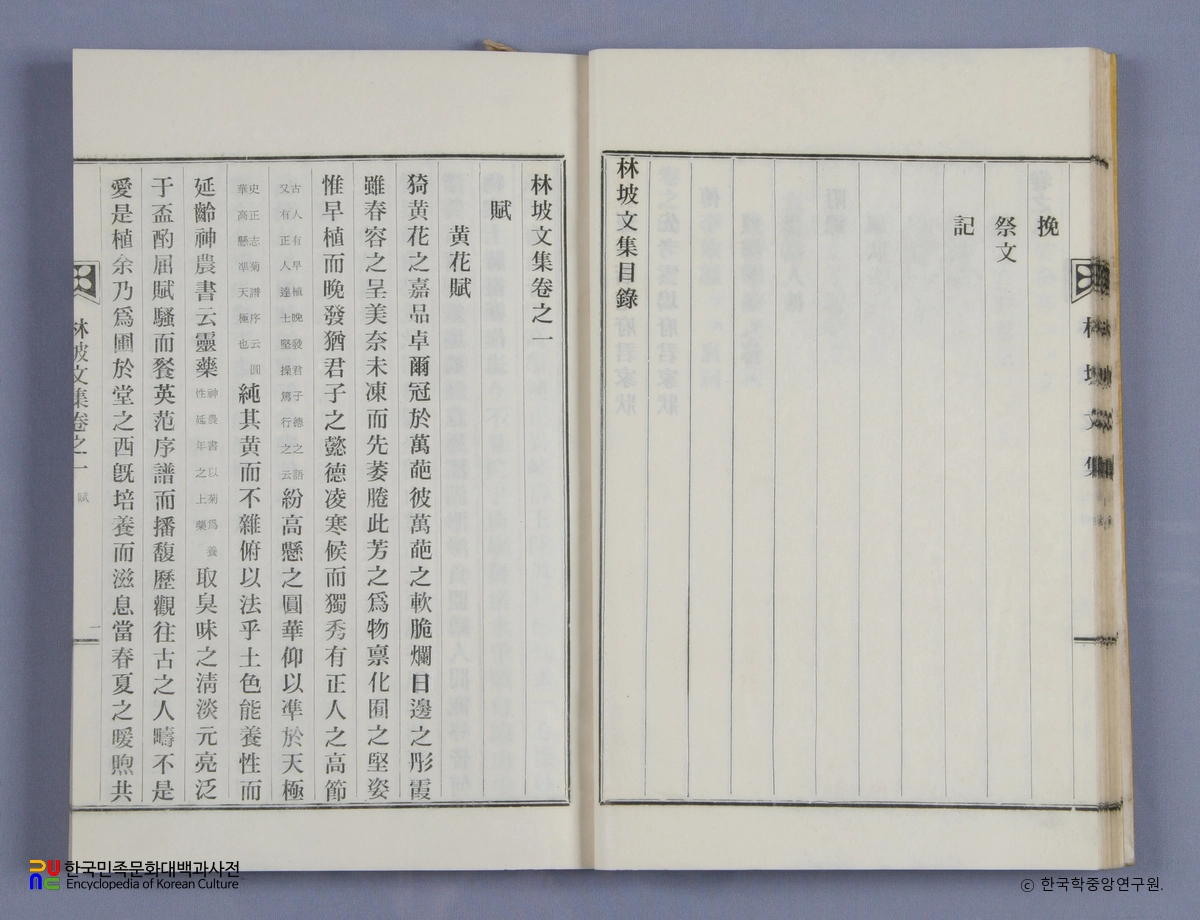 挽
祭文
記
林坡文集目錄
林坡文集
林坡文集卷之一
賦
黃花賦
猗黃花之嘉品卓爾冠於萬葩彼萬葩之軟脆爛日邊之彤霞
雖春容之呈美奈未凍而先萎睠此芳之爲物禀化囿之堅姿
惟早植而晚發猶君子之懿德凌寒候而獨秀有正人之高節
古人有早植晚發君子德之語又有正人達士堅操篤行之云紛高懸之圓華仰以準於天極
史正志菊譜序云圓華高懸凖天極也純其黃而不雜俯以法乎土色能養性而
延齡神農書云靈藥神農書以菊爲養性延年之上藥取臭味之淸淡元亮泛
于盃酌屈賦騷而餐英范序譜而播馥歷觀往古之人疇不是
愛是植余乃爲圃於堂之西旣培養而滋息當春夏之暖煦共
林坡文集卷之一 賦 一
한국민족문화대백과사전
Encyclopedia of Korean Culture
ⓒ 한국학중앙연구원.